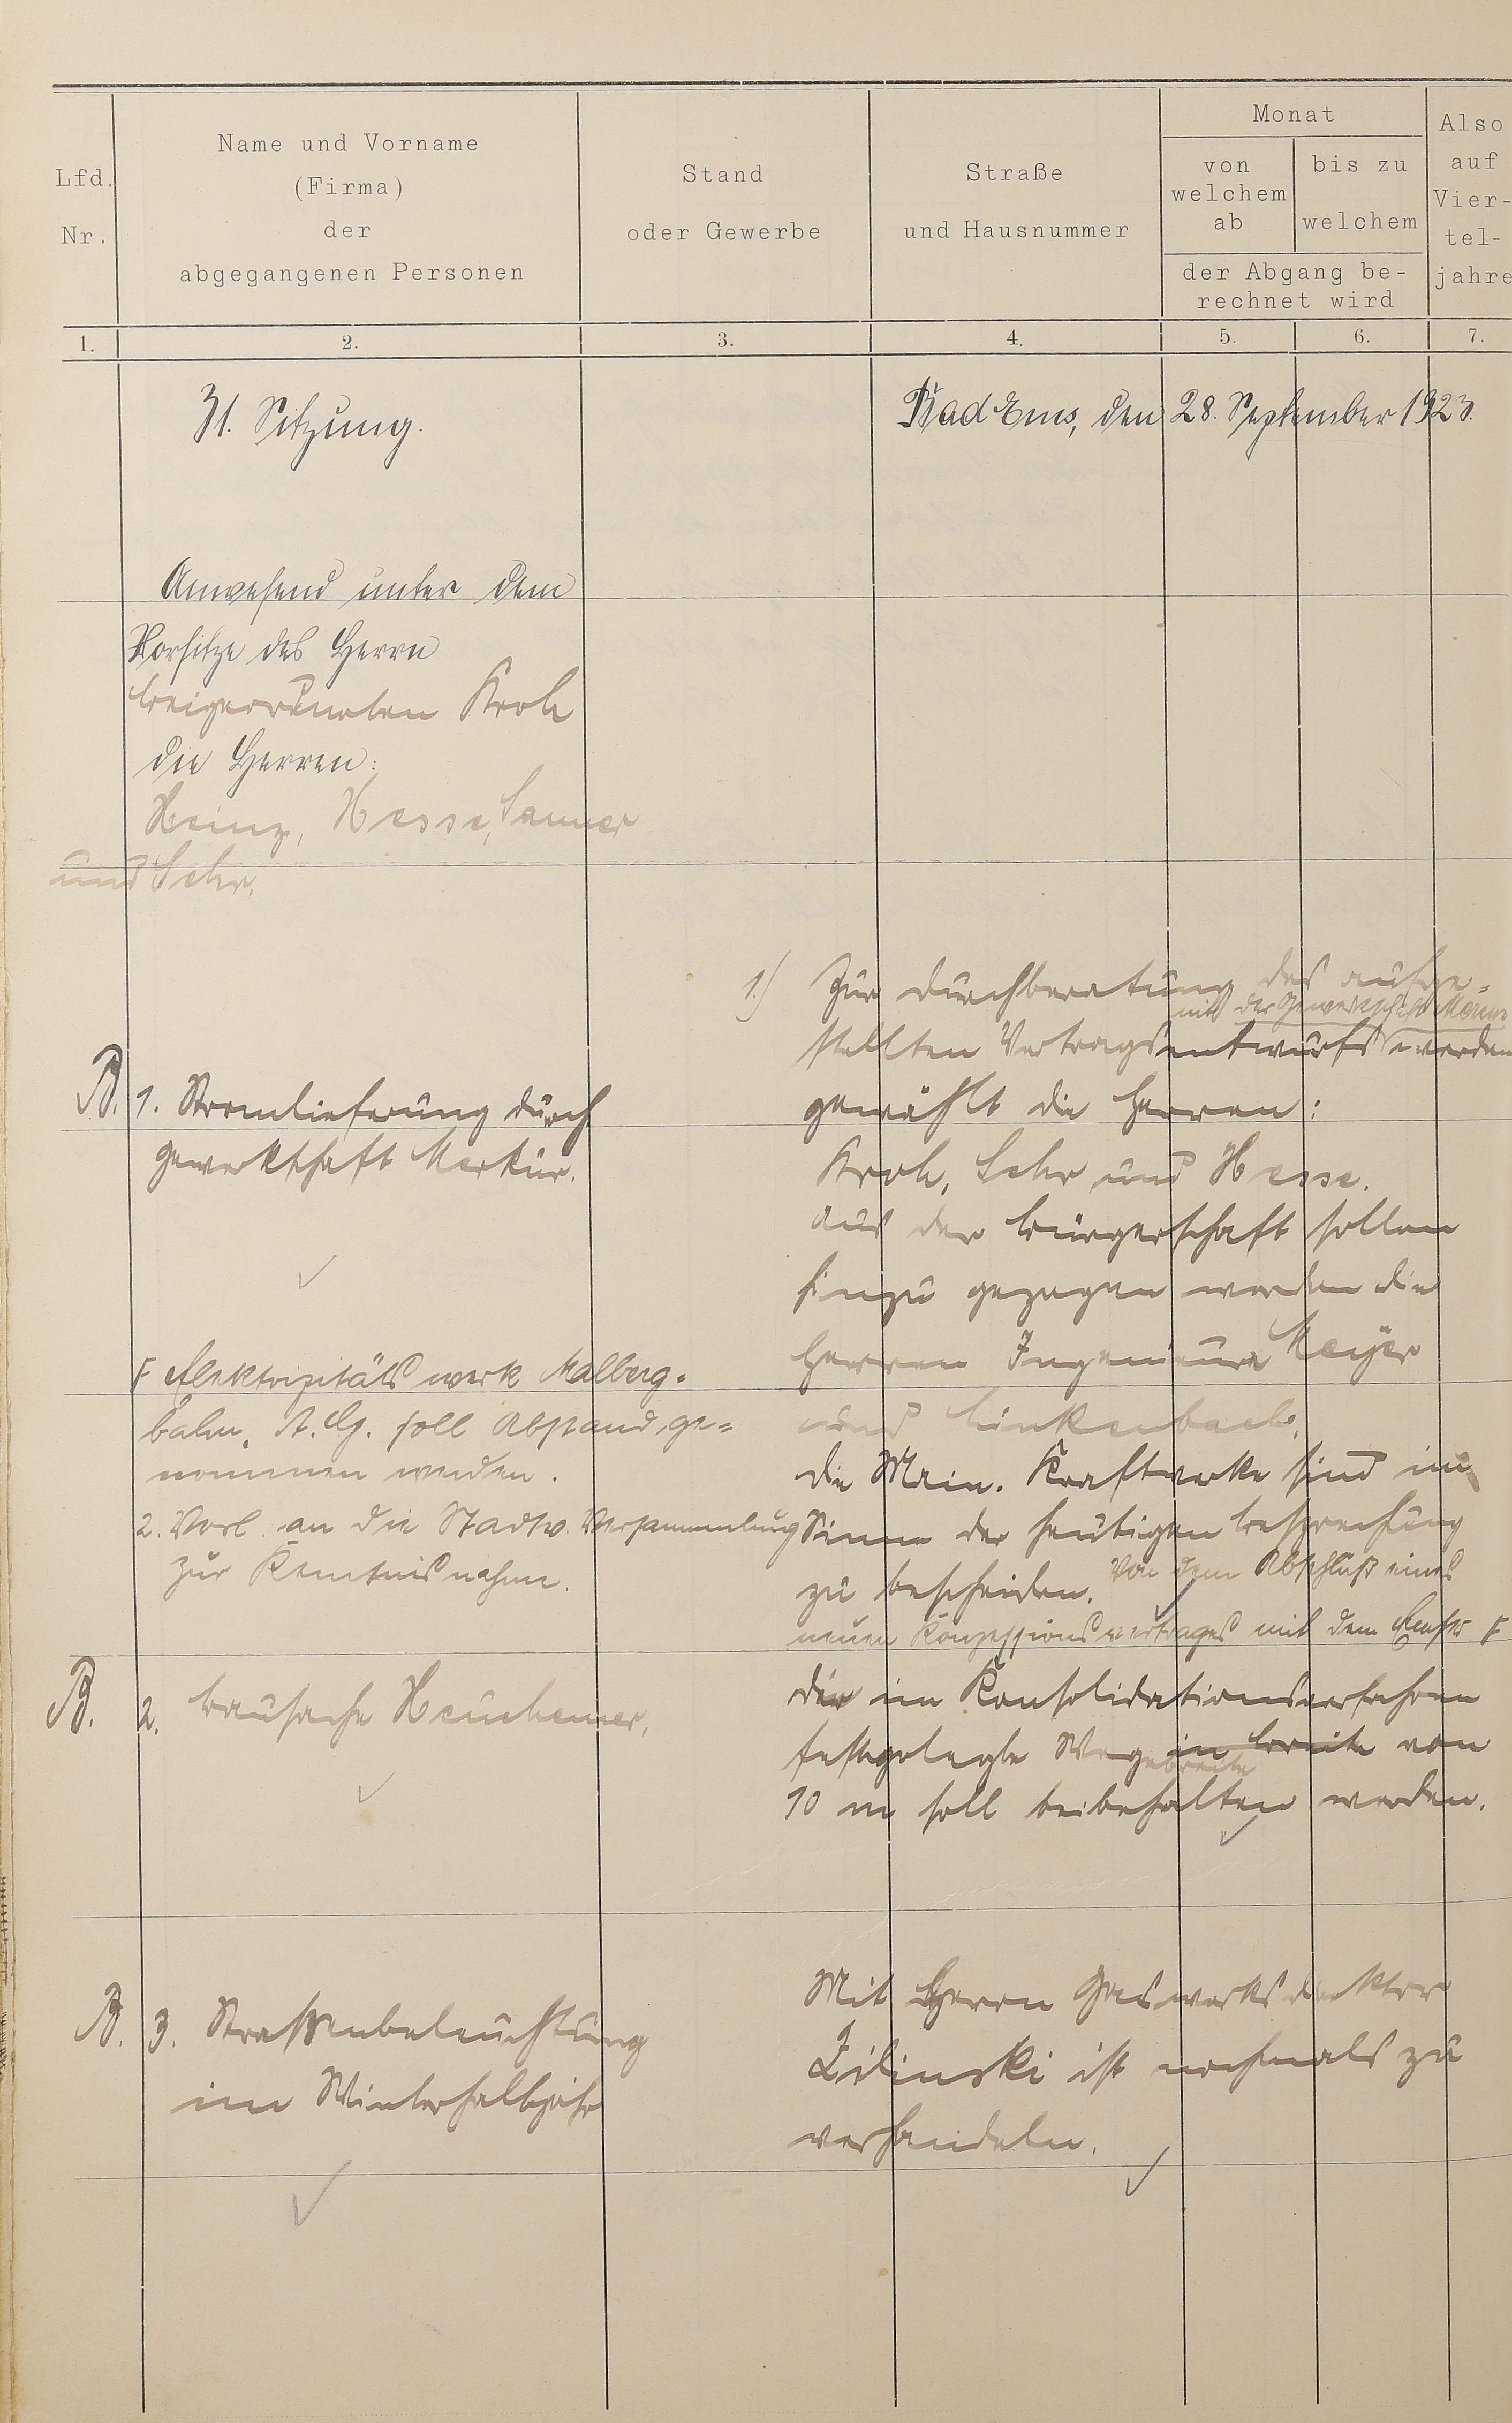 Lfd.
Nr.
Name und Vorname
(Firma)
der
abgegangenen Personen
Stand
oder Gewerbe
Straße
und Hausnummer
Monat
von
welchem
ab
bis zu
welchem
der Abgang be-
rechnet wird
Also
auf
Vier-
tel-
jahre
1.
2.
3.
4.
5.
6.
7.
31. Sitzung.
Bad Ems, den 28. September 1923.
Anwesend unter dem
Vorsitze des Herrn
Beigeordneten Kroh
die Herren:
Heinz, Hesse, Sanner
und Lehr.
B. 1. Stromlieferung durch
Gewerkschaft Merkur.
1.) Zur Durchberatung des aufge-
mit der Gewerkschaft Merkur
stellten Vertragsentwurfs werden
gewählt die Herren:
Kroh, Lehr und Hesse.
Aus der Bürgerschaft sollen
hinzu gezogen werden die
Herren Ingenieure Meyer
und Linkenbach.
Die Main. Kraftwerke sind im
Sinne der heutigen Besprechung
zu bescheiden. Von dem Abschluß eines
neuen Konzessionsvertrages mit dem Emser F
F Elektrizitätswerk Malberg-
bahn, A.G. soll Abstand ge-
nommen werden.
2. Vorl. an die Stadtv. Versammlung
zur Kenntnisnahme.
B. 2. Bausache Heuchemer.
Die im Konsolidationsverfahren
festgelegte Weg in Breite von
gebreite
10 m soll beibehalten werden.
B. 3. Straßenbeleuchtung
im Winterhalbjahr
Mit Herrn Gaswerksdirektor
Zilinski ist nochmals zu
verhandeln.